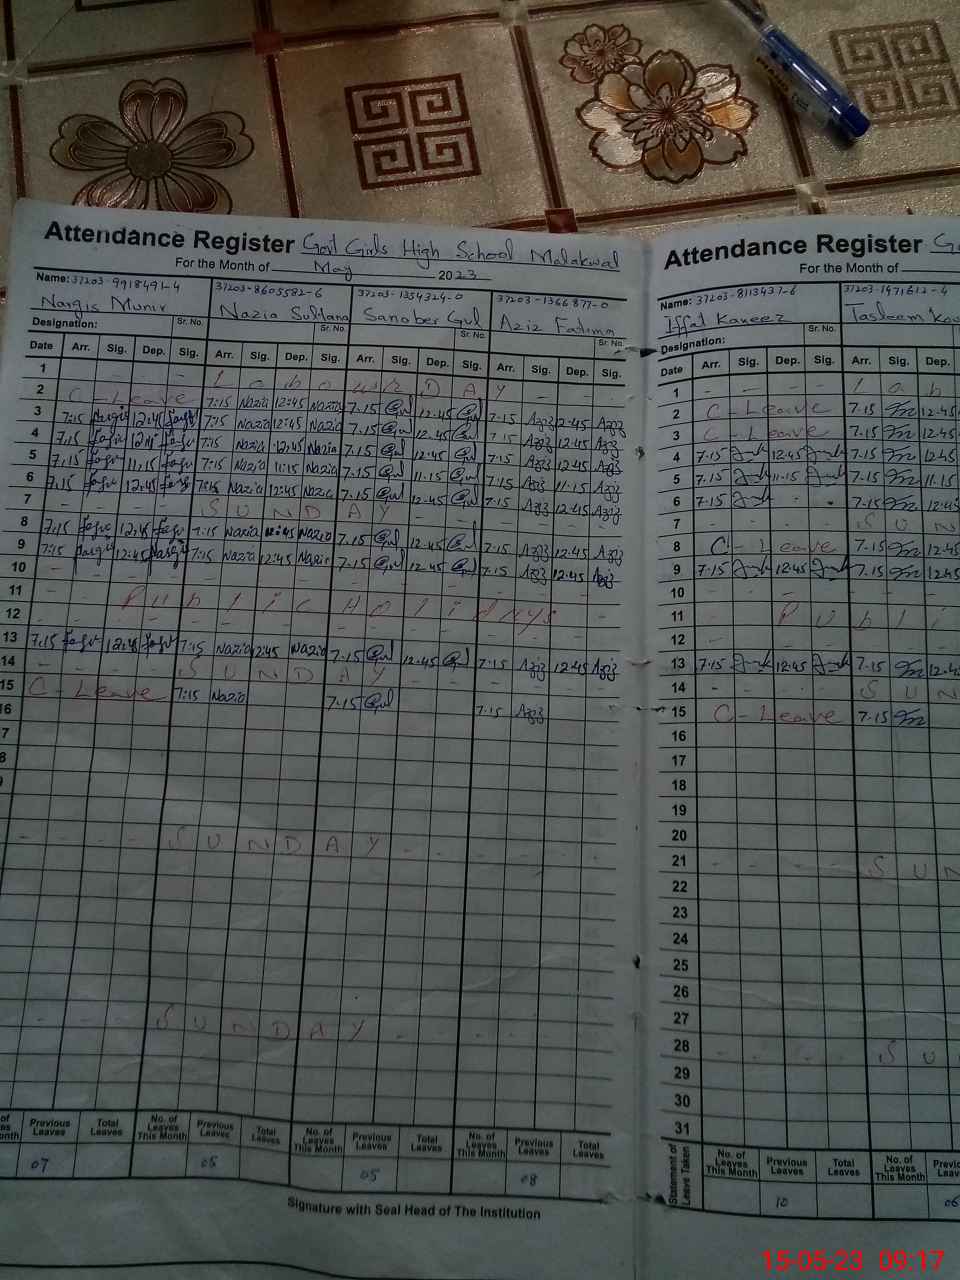 Attendance Register Govt Girls High School Malakwal
For the Month of May 2023
Name: 37203-9918491-4 37203-8605582-6 37203-1354324-0 37203-1366877-0
Nargis Munir Nazia Sultana Sanober Gul Aziz Fatima
Designation: Sr. No. Sr. No. Sr. No. Sr. No.
Date Arr. Sig. Dep. Sig. Arr. Sig. Dep. Sig. Arr. Sig. Dep. Sig. Arr. Sig. Dep. Sig.
1 - - - - L a b o u r D A Y - -
2 C - Leave 7:15 Nazia 12:45 Nazia 7.15 Gul 12.45 Gul 7.15 Aziz 12.45 Aziz
3 7:15 12:45 7:15 Nazia 12:45 Nazia 7.15 Gul 12.45 Gul 7.15 Aziz 12.45 Aziz
4 7.15 12:45 7:15 Nazia 12:45 Nazia 7.15 Gul 12.45 Gul 7.15 Aziz 12.45 Aziz
5 7.15 11.15 7:15 Nazia 11:15 Nazia 7.15 Gul 11.15 Gul 7.15 Aziz 11.15 Aziz
6 7.15 12:45 7:15 Nazia 12:45 Nazia 7.15 Gul 12.45 Gul 7.15 Aziz 12.45 Aziz
7 - - - - S U N D A Y - - - - -
8 7.15 12:45 7.15 Nazia 12:45 Nazia 7.15 Gul 12.45 Gul 7.15 Aziz 12.45 Aziz
9 7:15 Nargis 12:45 Nargis 7:15 Nazia 12:45 Nazia 7.15 Gul 12.45 Gul 7.15 Aziz 12.45 Aziz
10
11 P u b l i c H o l i d a y s
12
13 7.15 12:45 7:15 Nazia 12:45 Nazia 7.15 Gul 12.45 Gul 7.15 Aziz 12.45 Aziz
14 - - - - S U N D A Y - - - - -
15 C - Leave 7:15 Nazia 7.15 Gul 7.15 Aziz
16
7
8
- - - - S U N D A Y - - - - -
- - - S U N D A Y - - - -
Previous Leaves Total Leaves No. of Leaves This Month Previous Leaves Total Leaves No. of Leaves This Month Previous Leaves Total Leaves No. of Leaves This Month Previous Leaves Total Leaves
07 05 05 08
Signature with Seal Head of The Institution
Attendance Register
For the Month of
Name: 37203-8113437-6 37203-1471612-4
Iffat Kaneez Tasleem
Designation: Sr. No.
Date Arr. Sig. Dep. Sig. Arr. Sig. Dep.
1 - - - - l a b
2 C - Leave 7.15 12.45
3 C - Leave 7.15 12.45
4 7.15 12.45 7.15 12.45
5 7.15 11.15 7.15 11.15
6 7.15 7.15 12.45
7 S U N
8 C - Leave 7.15 12.45
9 7.15 12.45 7.15 12.45
10
11 P u b l i
12
13 7.15 12.45 7.15 12.45
14 S U N
15 C - Leave 7.15
16
17
18
19
20
21 S U N
22
23
24
25
26
27
28 S U
29
30
31
Statement of Leave Taken No. of Leaves This Month Previous Leaves Total Leaves No. of Leaves This Month
10 06
15-05-23 09:17